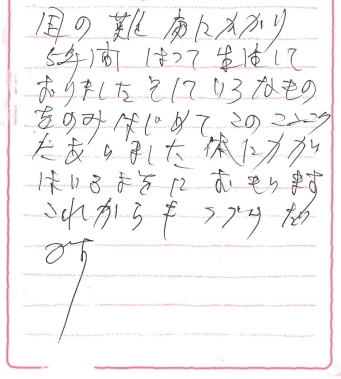 国の難病にかかり
5年間はって生活して
おりましたそしていろなもの
をのみはじめてこの
であいました体にかから
はいるように おもいます
これからもつづけたい
です